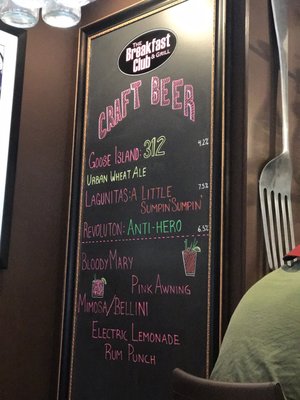 THE
Breakfast
Club
& GRILL
CRAFT BEER
GOOSE ISLAND: 312 4.2%
URBAN WHEAT ALE
LAGUNITAS: A LITTLE 7.5%
SUMPIN' SUMPIN'
REVOLUTON: ANTI-HERO 6.5%
BLOODY MARY
PINK AWNING
MIMOSA/BELLINI
ELECTRIC LEMONADE
RUM PUNCH